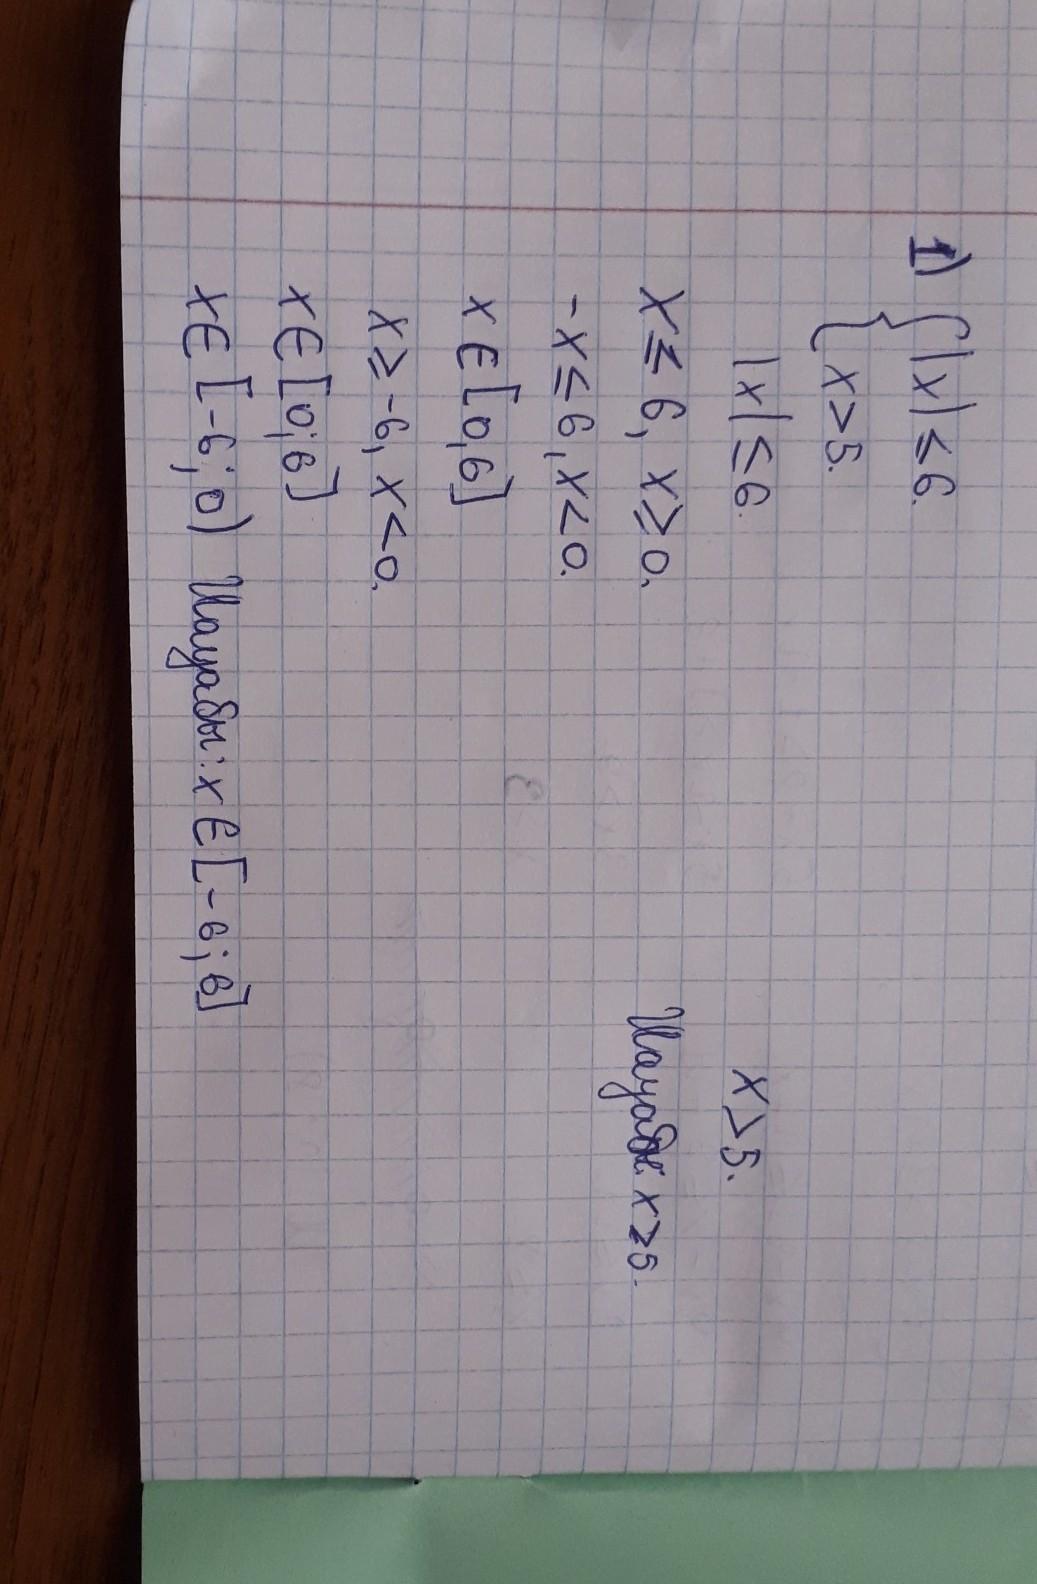 1) { |x| ≤ 6.
x > 5.
|x| ≤ 6.
x > 5.
x ≤ 6, x ≥ 0.
-x ≤ 6, x < 0.
x ∈ [0,6]
x ≥ -6, x < 0.
x ∈ [0;6]
x ∈ [-6;0) Жауабы: x ∈ [-6;6]
Жауабы: x ≥ 5.